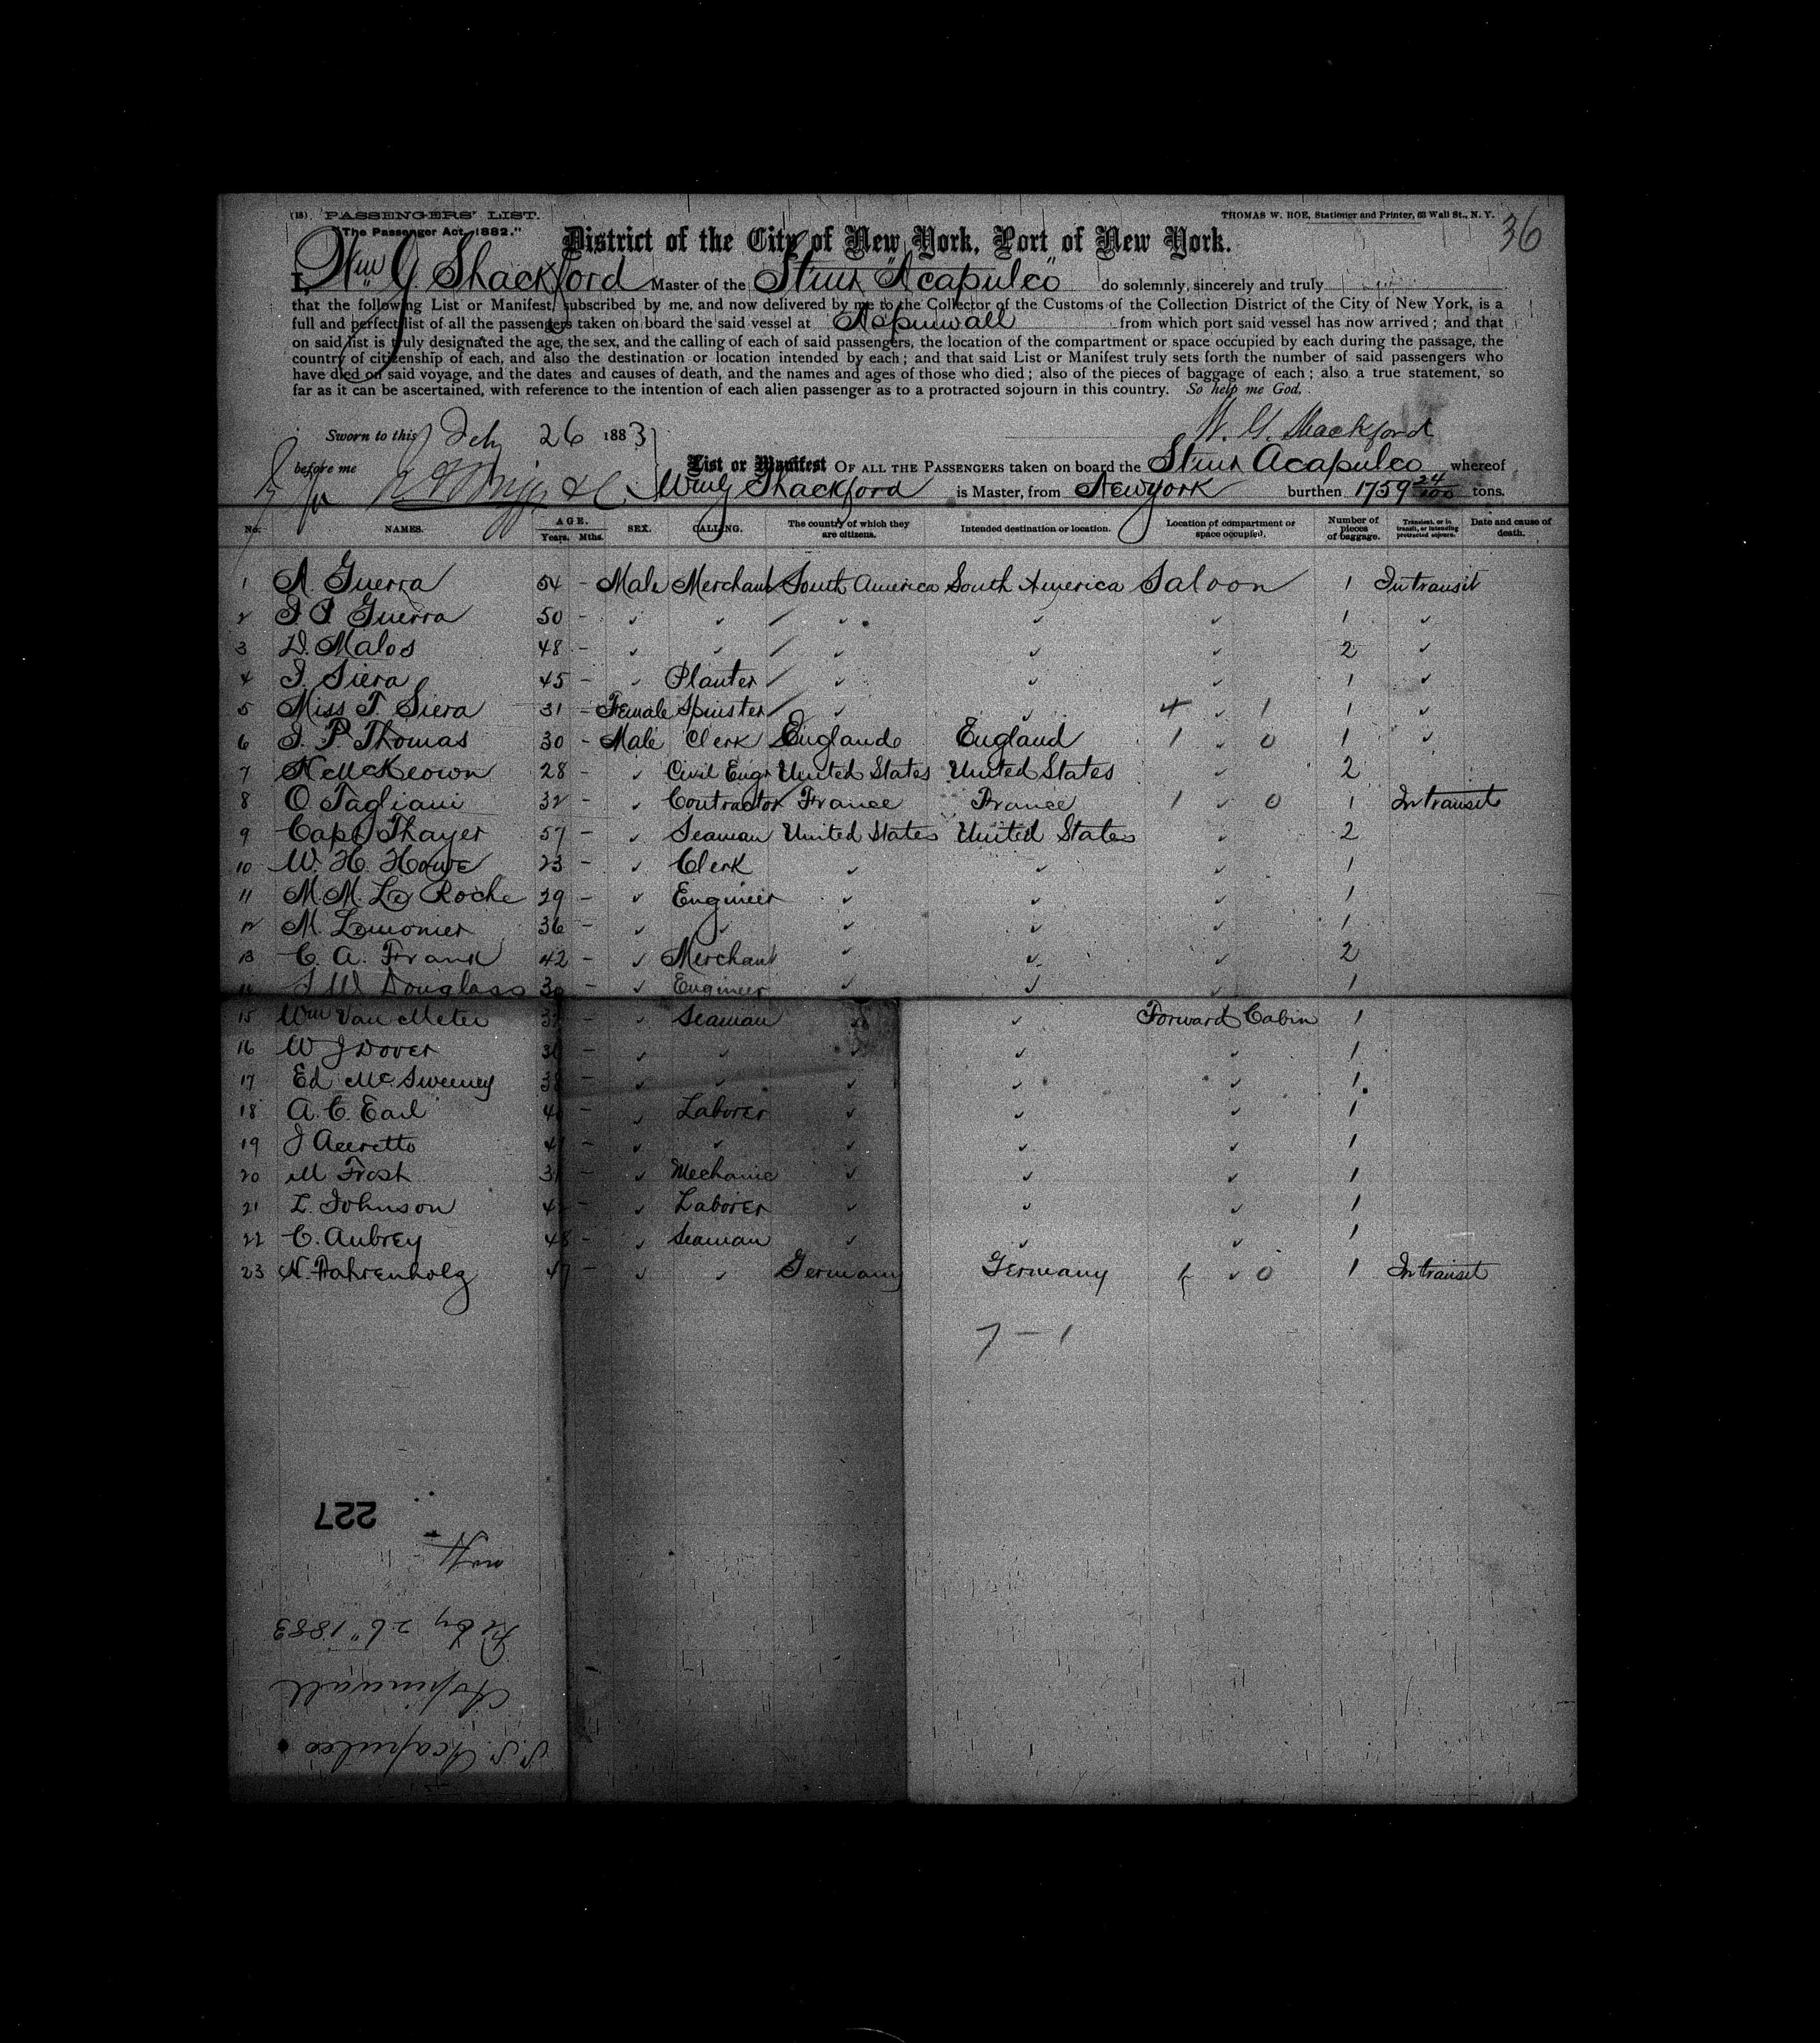 (18) PASSENGERS' LIST. THOMAS W. ROE, Stationer and Printer, 63 Wall St., N. Y. 36
"The Passenger Act, 1882."
District of the City of New York, Port of New York.
I, Wm G Shackford Master of the Stmr "Acapulco" do solemnly, sincerely and truly
that the following List or Manifest, subscribed by me, and now delivered by me to the Collector of the Customs of the Collection District of the City of New York, is a
full and perfect list of all the passengers taken on board the said vessel at Aspinwall from which port said vessel has now arrived; and that
on said list is truly designated the age, the sex, and the calling of each of said passengers, the location of the compartment or space occupied by each during the passage, the
country of citizenship of each, and also the destination or location intended by each; and that said List or Manifest truly sets forth the number of said passengers who
have died on said voyage, and the dates and causes of death, and the names and ages of those who died; also of the pieces of baggage of each; also a true statement, so
far as it can be ascertained, with reference to the intention of each alien passenger as to a protracted sojourn in this country. So help me God.
W. G. Shackford
Sworn to this Feby 26 1883
before me
List or Manifest OF ALL THE PASSENGERS taken on board the Stmr Acapulco whereof
Wm G Shackford is Master, from New york burthen 1759 24/100 tons.
No. NAMES. AGE. Years. Mths. SEX. CALLING. The country of which they are citizens. Intended destination or location. Location of compartment or space occupied. Number of pieces of baggage. Transient, or in transit, or intending protracted sojourn. Date and cause of death.
1 A. Guerra 54 - Male Merchant South America South America Saloon 1 In transit
2 J. J. Guerra 50 - ✓ ✓ ✓ ✓ ✓ 1 ✓
3 D. Malos 48 - ✓ ✓ ✓ ✓ ✓ 2 ✓
4 J. Siera 45 - ✓ Planter ✓ ✓ ✓ 1 ✓
5 Miss T. Siera 31 - Female Spinster ✓ ✓ 4 ✓ 1 1 ✓
6 J. P. Thomas 30 - Male Clerk England England 1 ✓ 0 1 ✓
7 N McKeown 28 - ✓ Civil Engr United States United States ✓ 2
8 O Tagliani 32 - ✓ Contractor France France 1 ✓ 0 1 In transit
9 Capt Thayer 57 - ✓ Seaman United States United States ✓ 2
10 W. H. Howe 23 - ✓ Clerk ✓ ✓ ✓ 1
11 M. M. Le Roche 29 - ✓ Engineer ✓ ✓ ✓ 1
12 M. Lemonier 36 - ✓ ✓ ✓ ✓ ✓ 1
13 C. A. Frank 42 - ✓ Merchant ✓ ✓ ✓ 2
14 J W Douglass - ✓ Engineer ✓ ✓ ✓ 1
15 Wm Van Meter ✓ Seaman ✓ ✓ Forward Cabin 1
16 W J Dover - ✓ ✓ ✓ ✓ ✓ 1
17 Ed McSweeney - ✓ ✓ ✓ ✓ ✓ 1
18 A. C. Earl - ✓ Laborer ✓ ✓ ✓ 1
19 J Accretto - ✓ ✓ ✓ ✓ ✓ 1
20 M Frost - ✓ Mechanic ✓ ✓ ✓ 1
21 L. Johnson - ✓ Laborer ✓ ✓ ✓ 1
22 C. Aubrey 48 - ✓ Seaman ✓ ✓ ✓ 1
23 N. Fahrenholz 47 - ✓ ✓ Germany Germany 1 ✓ 0 1 In transit
7 - 1
227
Feby 26" 1883
Aspinwall
S.S. Acapulco